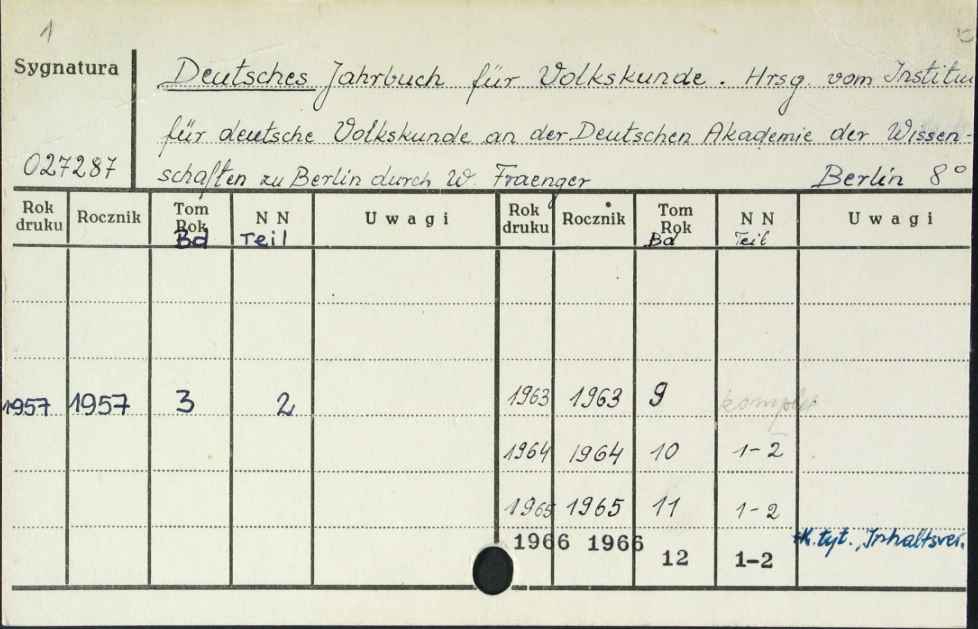 1
Sygnatura
Deutsches Jahrbuch für Volkskunde. Hrsg. vom Institu
für deutsche Volkskunde an der Deutschen Akademie der Wissen-
027287
schaften zu Berlin durch W. Fraenger Berlin 8°
Rok druku Rocznik Tom Rok Bd N N Teil Uwagi Rok druku Rocznik Tom Rok Bd N N Teil Uwagi
1957 1957 3 2 1963 1963 9 komplet
1964 1964 10 1-2
1965 1965 11 1-2
1966 1966 12 1-2 K. tyt., Inhaltsver.